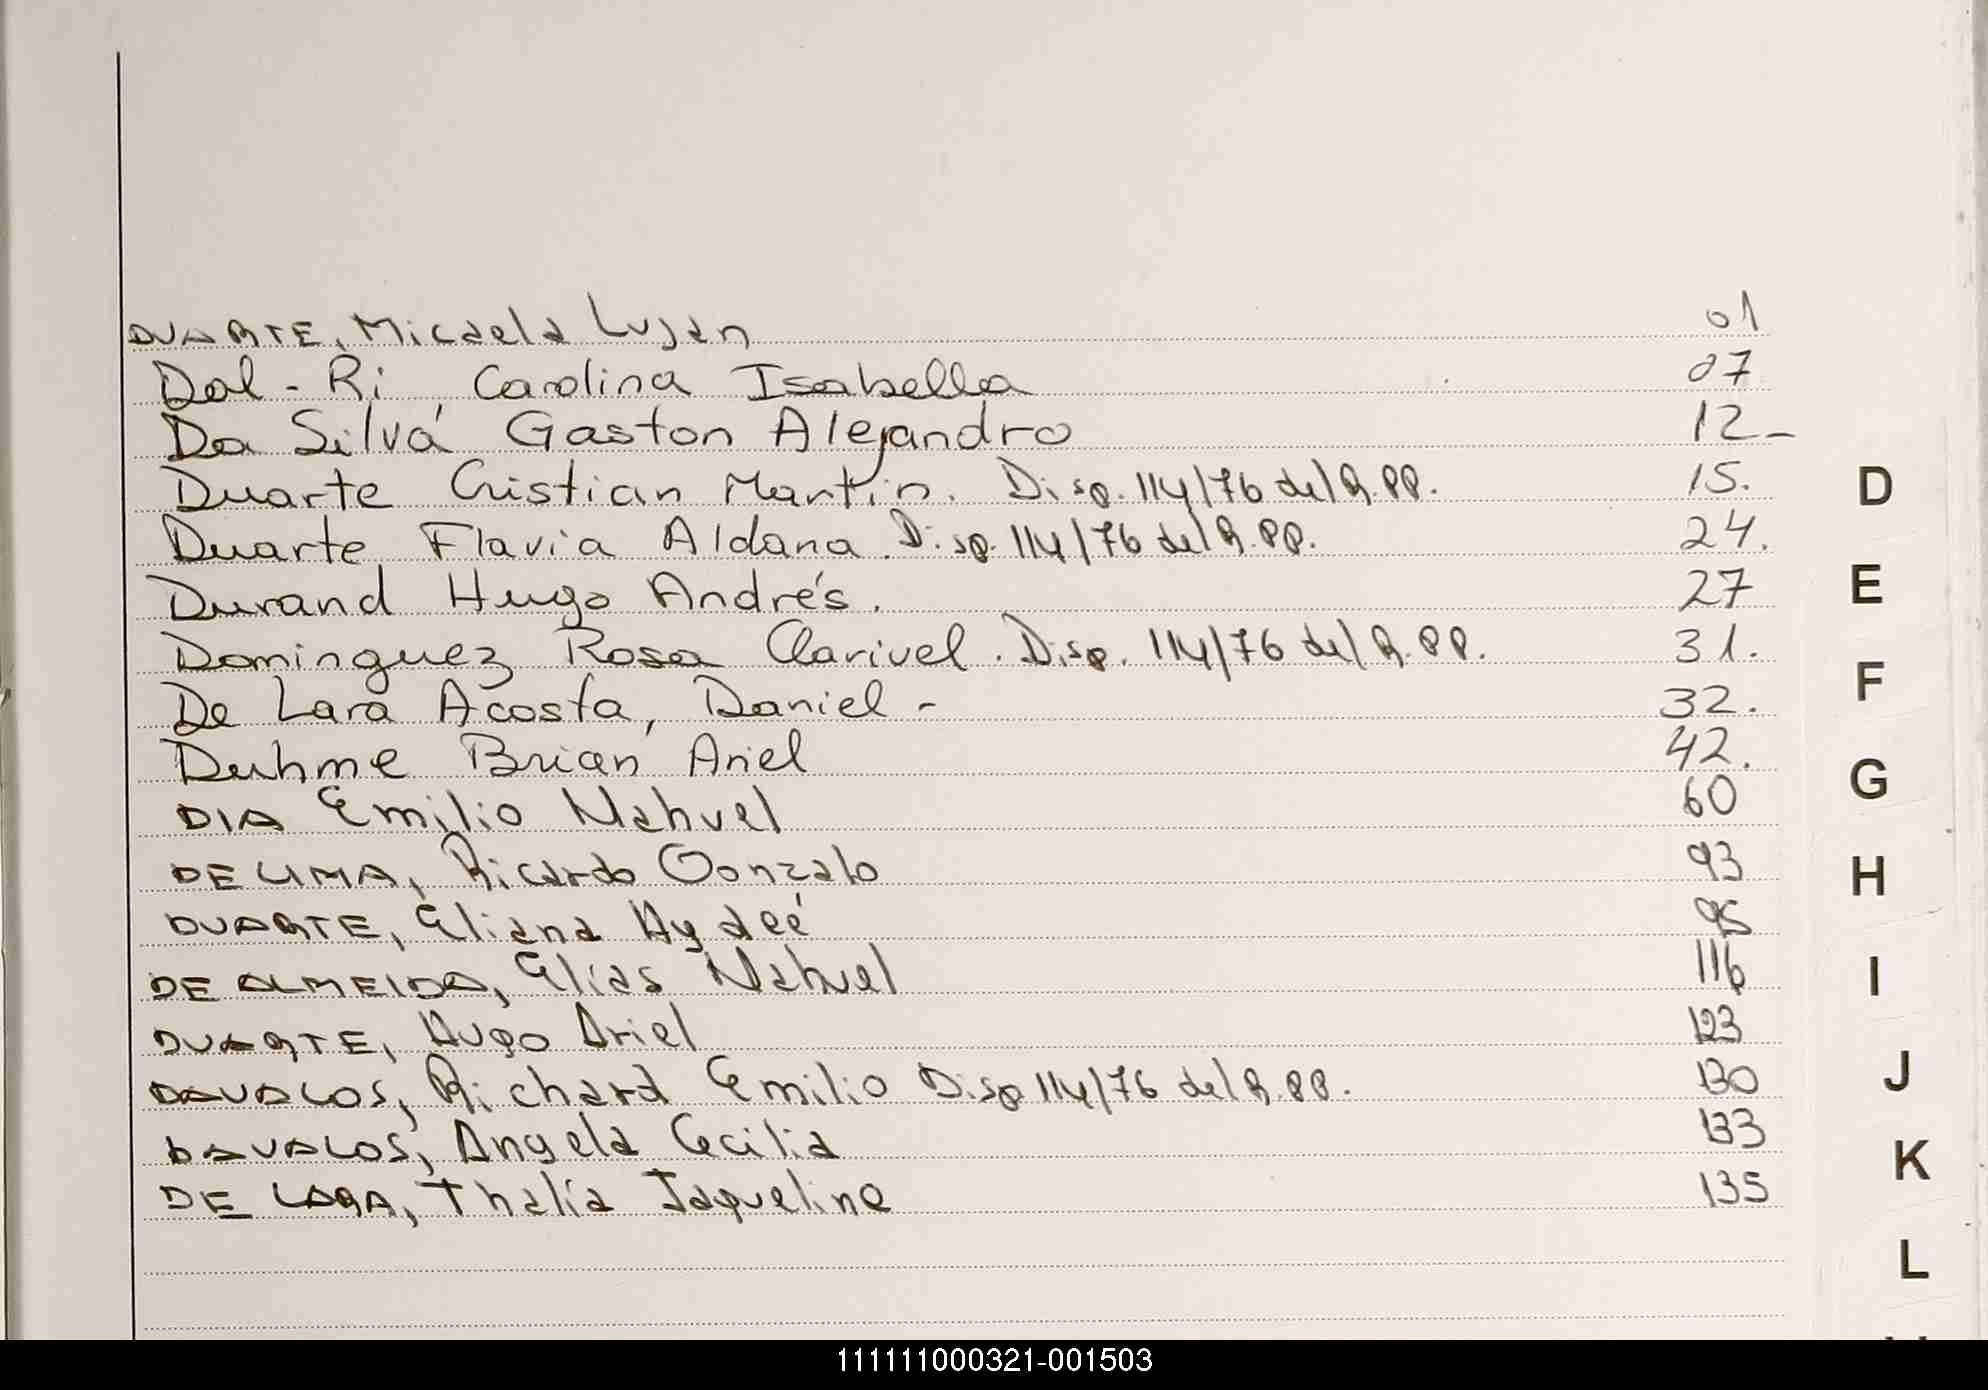 DUARTE, Micaela Lujan 01
Dal - Ri, Carolina Isabella 07
Da Silva, Gaston Alejandro 12-
Duarte Cristian Martin. Disp. 114/76 del R.PP. 15.
Duarte Flavia Aldana. Disp. 114/76 del R.PP. 24.
Durand Hugo Andrés. 27
Dominguez Rosa Clarivel. Disp. 114/76 del R.PP. 31.
De Lara Acosta, Daniel - 32.
Duhme Brian Ariel 42.
DIA Emilio Nahuel 60
DE LIMA, Ricardo Gonzalo 93
DUARTE, Eliana Aydeé 95
DE ALMEIDA, Elias Nahuel 116
DUARTE, Hugo Ariel 123
DAVALOS, Richard Emilio Disp 114/76 del R.PP. 130
DAVALOS, Angela Cecilia 133
DE LARA, Thalía Jaqueline 135
D
E
F
G
H
I
J
K
L
111111000321-001503